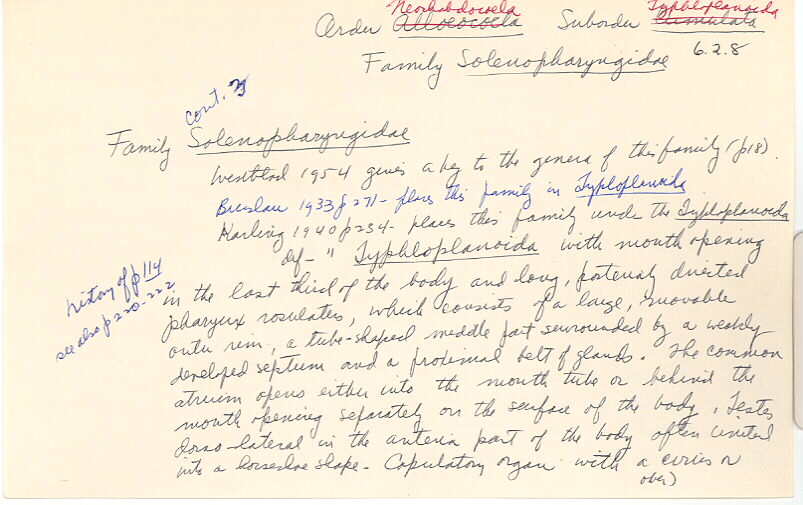 Neorhabdocoela Typhloplanoida
Order Alloeocoela Suborder Cumulata
Family Solenopharyngidae 6.2.8
cont. 3
Family Solenopharyngidae
Westblad 1954 gives a key to the genera of this family (p18).
Bresslau 1933 p 271 - places this family in Typloplanoida
Karling 1940 p 234 - places this family under the Typloplanoida
def - " Typhloplanoida with mouth opening
history of p 114
see also p 220-222
in the last third of the body and long, posteriorly directed
pharynx rosulatus, which consists of a large, movable
outer rim, a tube-shaped middle part surrounded by a weakly
developed septum and a proximal belt of glands. The common
atrium opens either into the mouth tube or behind the
mouth opening separately on the surface of the body. Testes
dorso-lateral in the anterior part of the body often united
into a horseshoe shape - Copulatory organ with a cirrus or
over)